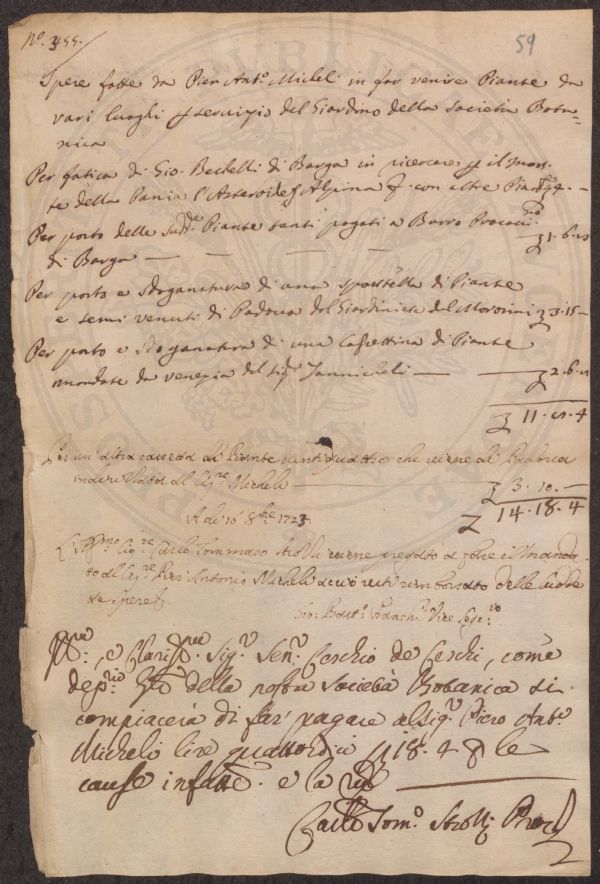 Nº. 355.
59
Spese fatte da Pier Antº. Micheli in far venire Piante da
vari luoghi p servizio del Giardino della Società Bota=
nica
Per fatica di Gio. Bechelli di Barga in ricercare p il Mon-
te della Pania l'Asteroides Alpina &c. con altre Piante 4. —
Per porto delle sudde. Piante tanti pagati a Barro Procaccio
di Barga — — — — 1. 6. 8
Per porto e sdoganatura di una sportella di Piante
e semi venuti di Padova del Giardiniere del Morosini 3. 15 —
Per porto e sdoganatura di una Cassettina di Piante
mandate da Venezia del Sigr. Zannichelli — — 2. 6. 8
11. 8. 4
Per un'altra cassetta di Piante venti quattro che viene di Padova
indirizzata al Sigre. Micheli — — 3. 10. —
14. 18. 4
A dì 16 8bre 1723
L'Illmo Sigre. Carlo Tommaso Strozzi viene pregato a fare il Manda
to al Sigre Pier Antonio Micheli acciò resti rimborsato delle sudde
te Spese
Gio: Batta. Vice Segrio
e Clarissmo. Sigr. Senr. Cerchio de Cerchi, come
deprio della nostra Società Botanica si
compiacerà di far pagare al Sigr. Piero Anto.
Micheli lire quattordici 18. 4 p le
cause infatte. e la
Carlo Tomº. Strozzi